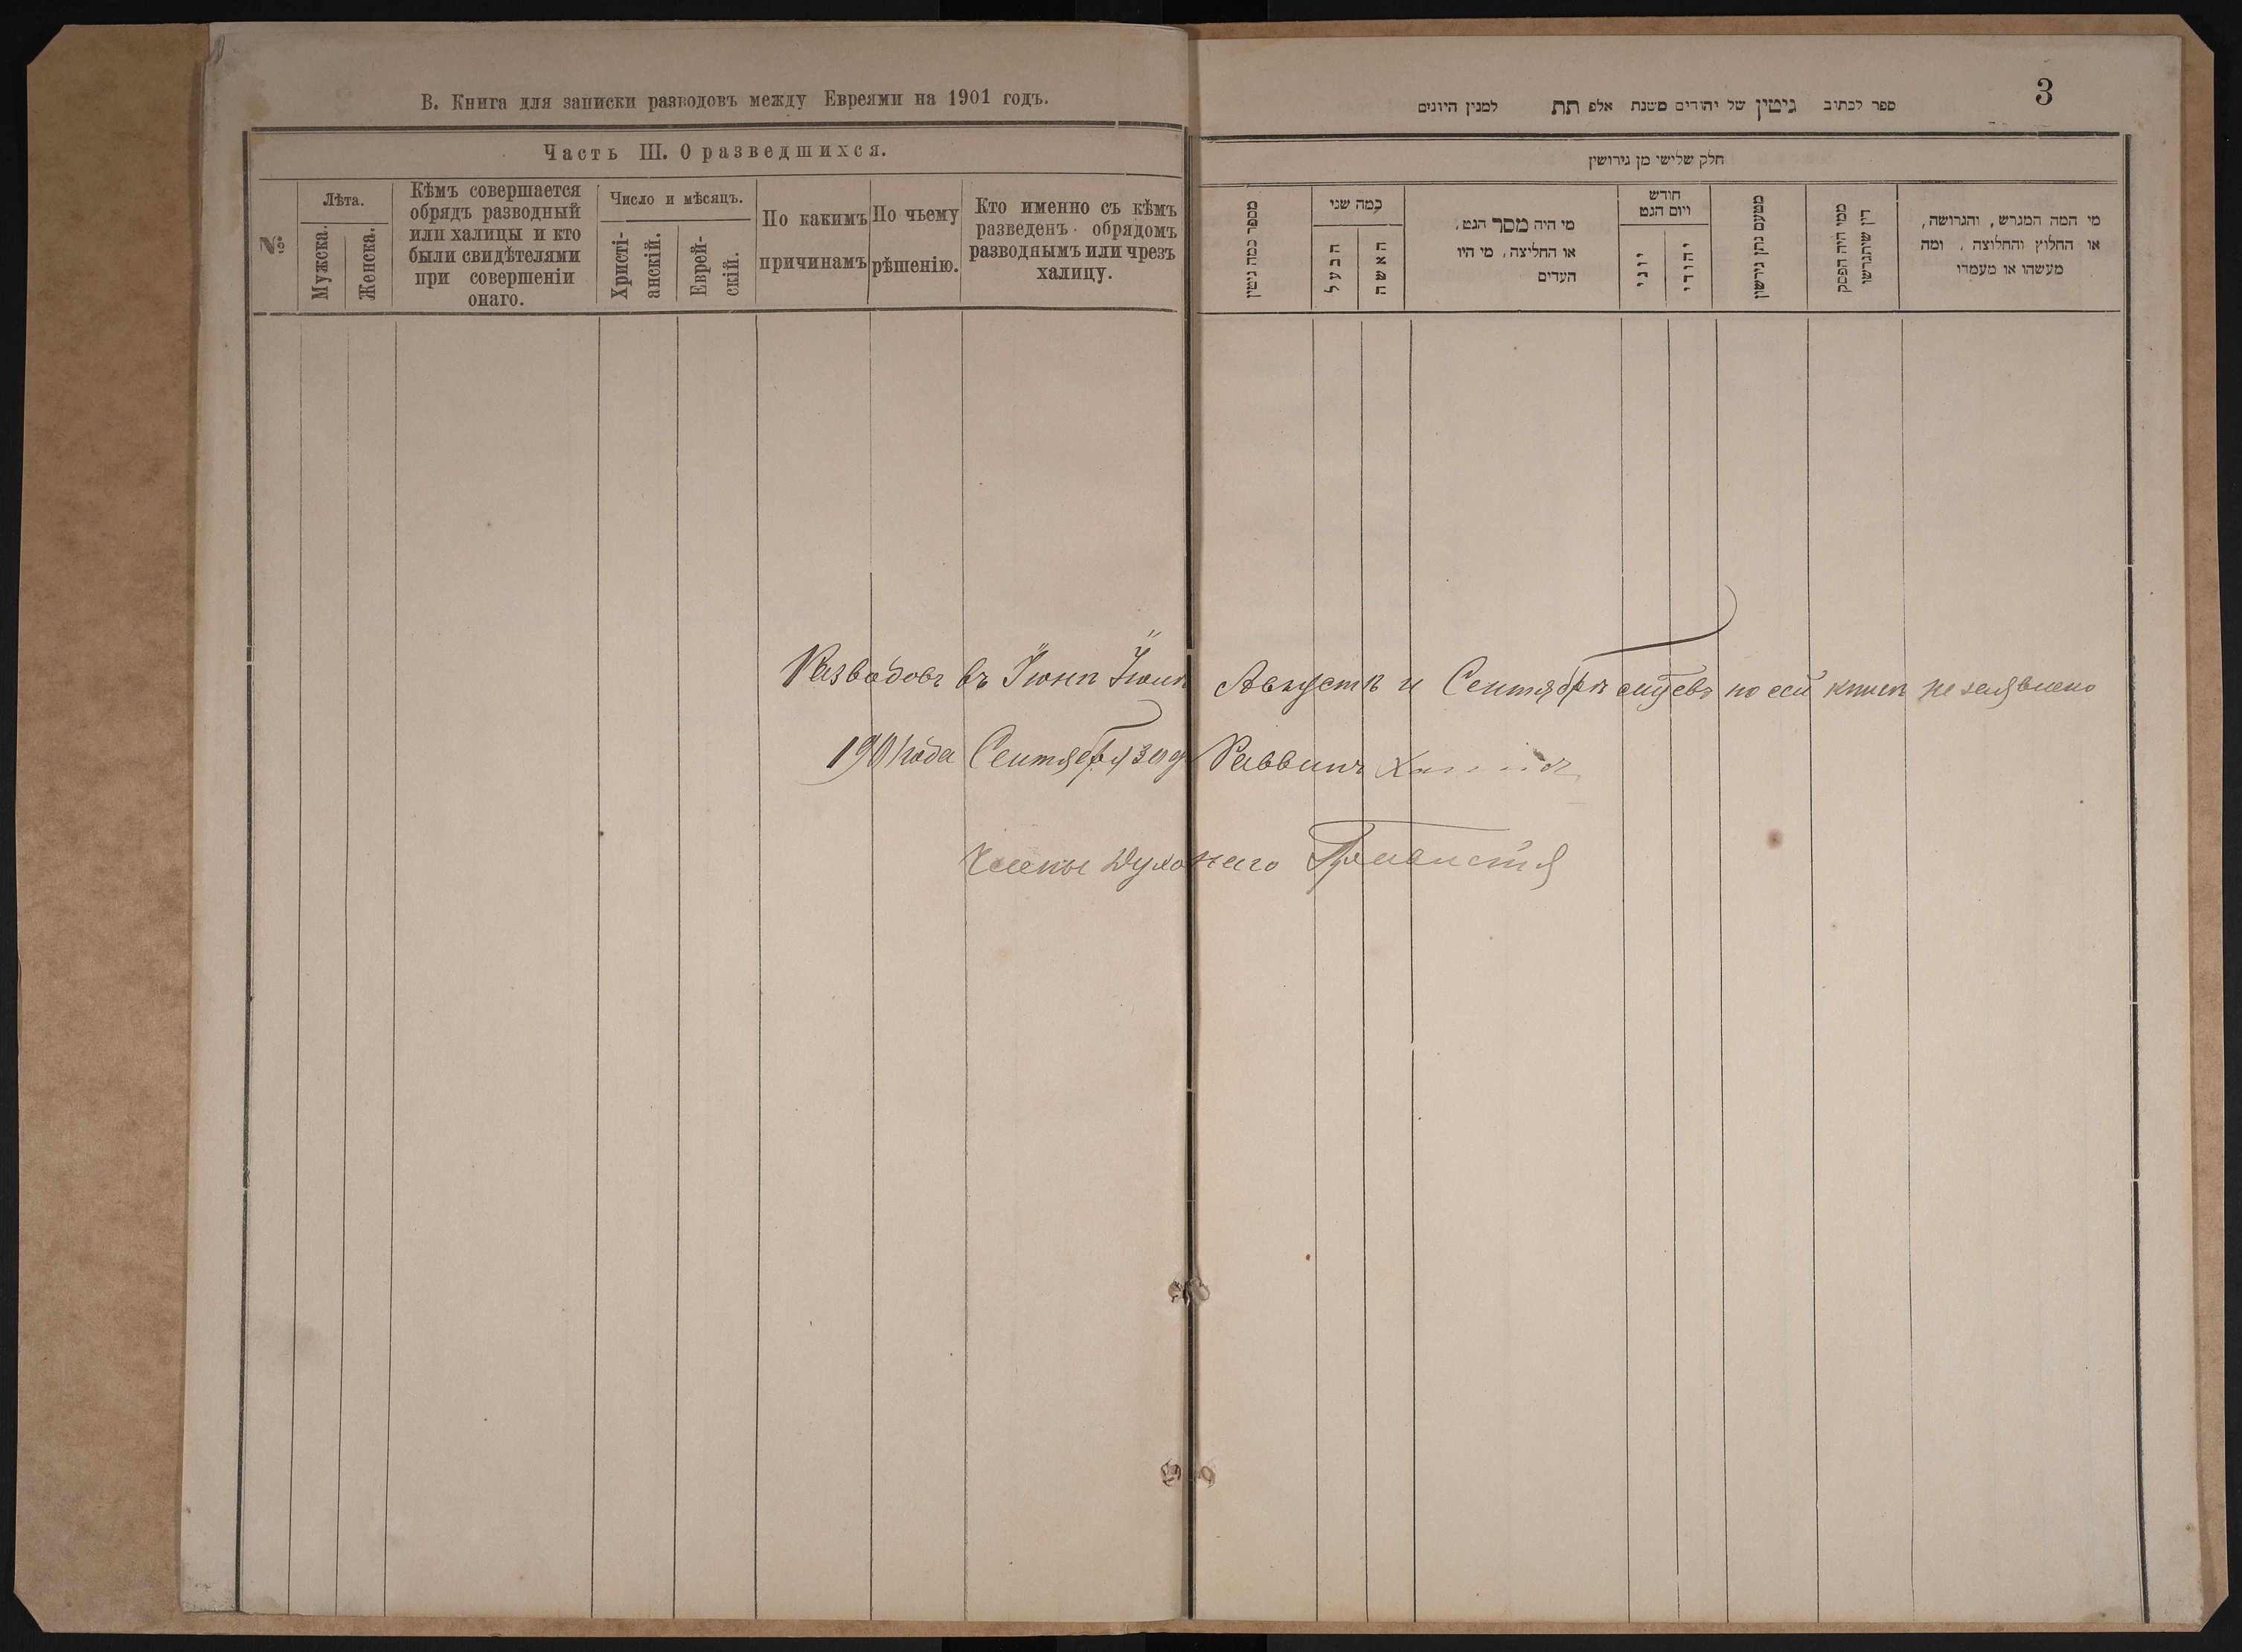 В. Книга для записки разводовъ между Евреями на 1901 годъ.
Часть III. О разведшихся.
№
Лѣта.
Мужска.
Женска.
Кѣмъ совершается
обрядъ разводный
или халицы и кто
были свидѣтелями
при совершеніи
онаго.
Число и мѣсяцъ.
Христі-
анскій.
Еврей-
скій.
По какимъ
причинамъ
По чьему
рѣшенію.
Кто именно съ кѣмъ
разведенъ обрядомъ
разводнымъ или чрезъ
халицу.
3
ספר לכתוב גיטין של יהודים משנת אלפ תת למנין היונים
חלק שלישי מן גירושין
מספר כמה גיטין
כמה שני
הבעל
האשה
מי היה מסר הגט,
או החליצה, מי היו
העדים
חודש
ויום הגט
יוני
יהודי
מטעם נתן גירושין
ממי היה הפסק
דין שיתגרשו
מי המה המגרש, והגרושה,
או החלוץ והחלוצה, ומה
מעשהו או מעמדו
Разводовъ въ Іюнѣ Іюлѣ Августѣ и Сентябрѣ по сей книгѣ не заявлено
1901 года Сентября 30 д Раввинъ
Члены Духовнаго Правленія